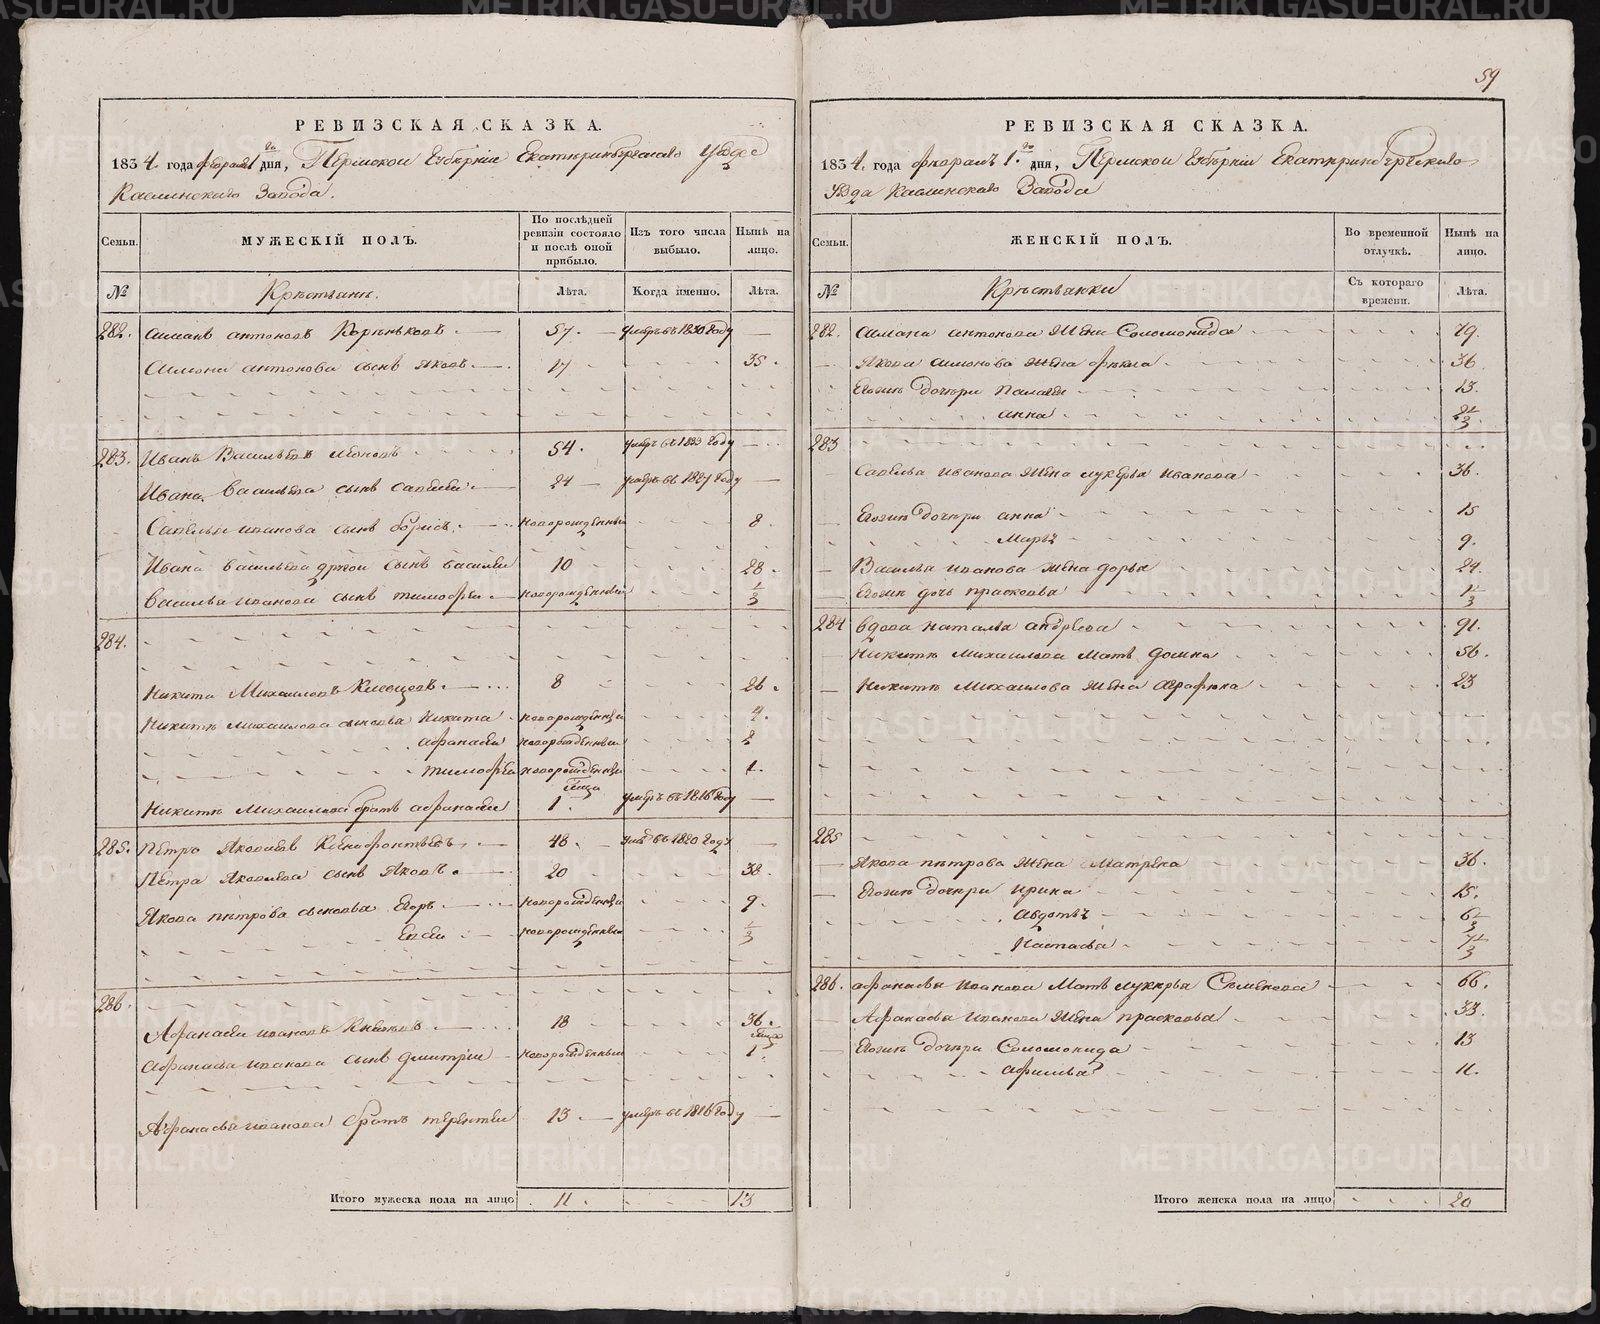 59
РЕВИЗСКАЯ СКАЗКА.
1834. года февраля 1го дня, Пермской Губернiи Екатеринбургскаго Уезда
Каслинскаго Завода.
Семьи. МУЖЕСКIЙ ПОЛЪ. По послѣдней ревизiи состояло и послѣ оной прибыло. Изъ того числа выбыло. Нынѣ на лицо.
№ Крестьянъ. Лѣта. Когда именно. Лѣта.
282. Симанъ антоновъ 57. умеръ въ 1830 году
Симона антонова сынъ Яковъ. 17 35.
283. Иванъ Васильевъ 54. умеръ въ 1833 году
Ивана Васильева сынъ савелей 24 умеръ въ 1827 году
Савелья иванова сынъ борисъ. новорожденный 8.
Ивана васильева другой сынъ василей 10 28.
Василья иванова сынъ тимофей новорожденный 1/3
284.
Никита Михаиловъ Клевцовъ. 8 26.
Никиты михаилова сыновья Никита новорожденный 4.
афанасей новорожденный 2
тимофей новорожденный 1.
лица
Никиты Михаилова братъ афанасей 1. умеръ въ 1816 году
285. Петръ Яковлевъ Ксенофонтьевъ 48. умеръ въ 1820 году
Петра Яковлева сынъ Яковъ. 20 38.
Якова петрова сыновья Егоръ. новорожденный 9.
Евсей новорожденный 1/3
286.
Афанасей ивановъ 18 36.
Афанасья иванова сынъ дмитрiй новорожденный 1.
Афанасья иванова братъ терентей 13 умеръ въ 1816 году
Итого мужеска пола на лицо 11. 13
РЕВИЗСКАЯ СКАЗКА.
1834. года февраля 1.го дня, Пермской Губернiи Екатеринбургскаго
Уезда Каслинскаго Завода
Семьи. ЖЕНСКIЙ ПОЛЪ. Во временной отлучкѣ. Нынѣ на лицо.
№ Крестьянки Съ котораго времени. Лѣта.
282. Симана антонова жена Соломонида 79.
Якова симонова жена фекла 36
Егожъ дочери Палагея 13.
анна 2 1/2
283
Савелья иванова жена лукерья иванова 36.
Егожъ дочери анна 15
Марья 9.
Василья иванова жена дарья 24.
Егожъ дочь прасковья 1 1/3
284 вдова наталья андреева 91.
Никиты михаилова мать домна 56.
Никиты михаилова жена аграфена 23
285
Якова петрова жена Матрена 36.
Егожъ дочери ирина 15.
Авдотья 6 1/3
Настасья 7 1/3
286. афанасья иванова мать лукерья Семенова 66.
Афанасья иванова жена прасковья 33.
Егожъ дочери Соломонида 13
11.
Итого женска пола на лицо 20
METRIKI.GASO-URAL.RU